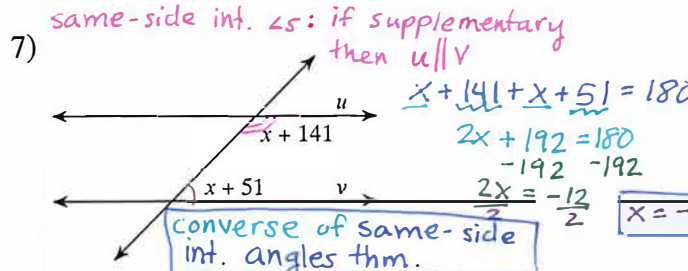 same-side int. ∠s: if supplementary
then u∥v
7)
u
x + 141
x + 51
v
x + 141 + x + 51 = 180
2x + 192 = 180
-192 -192
2x/2 = -12/2
x = -
converse of same-side
int. angles thm.